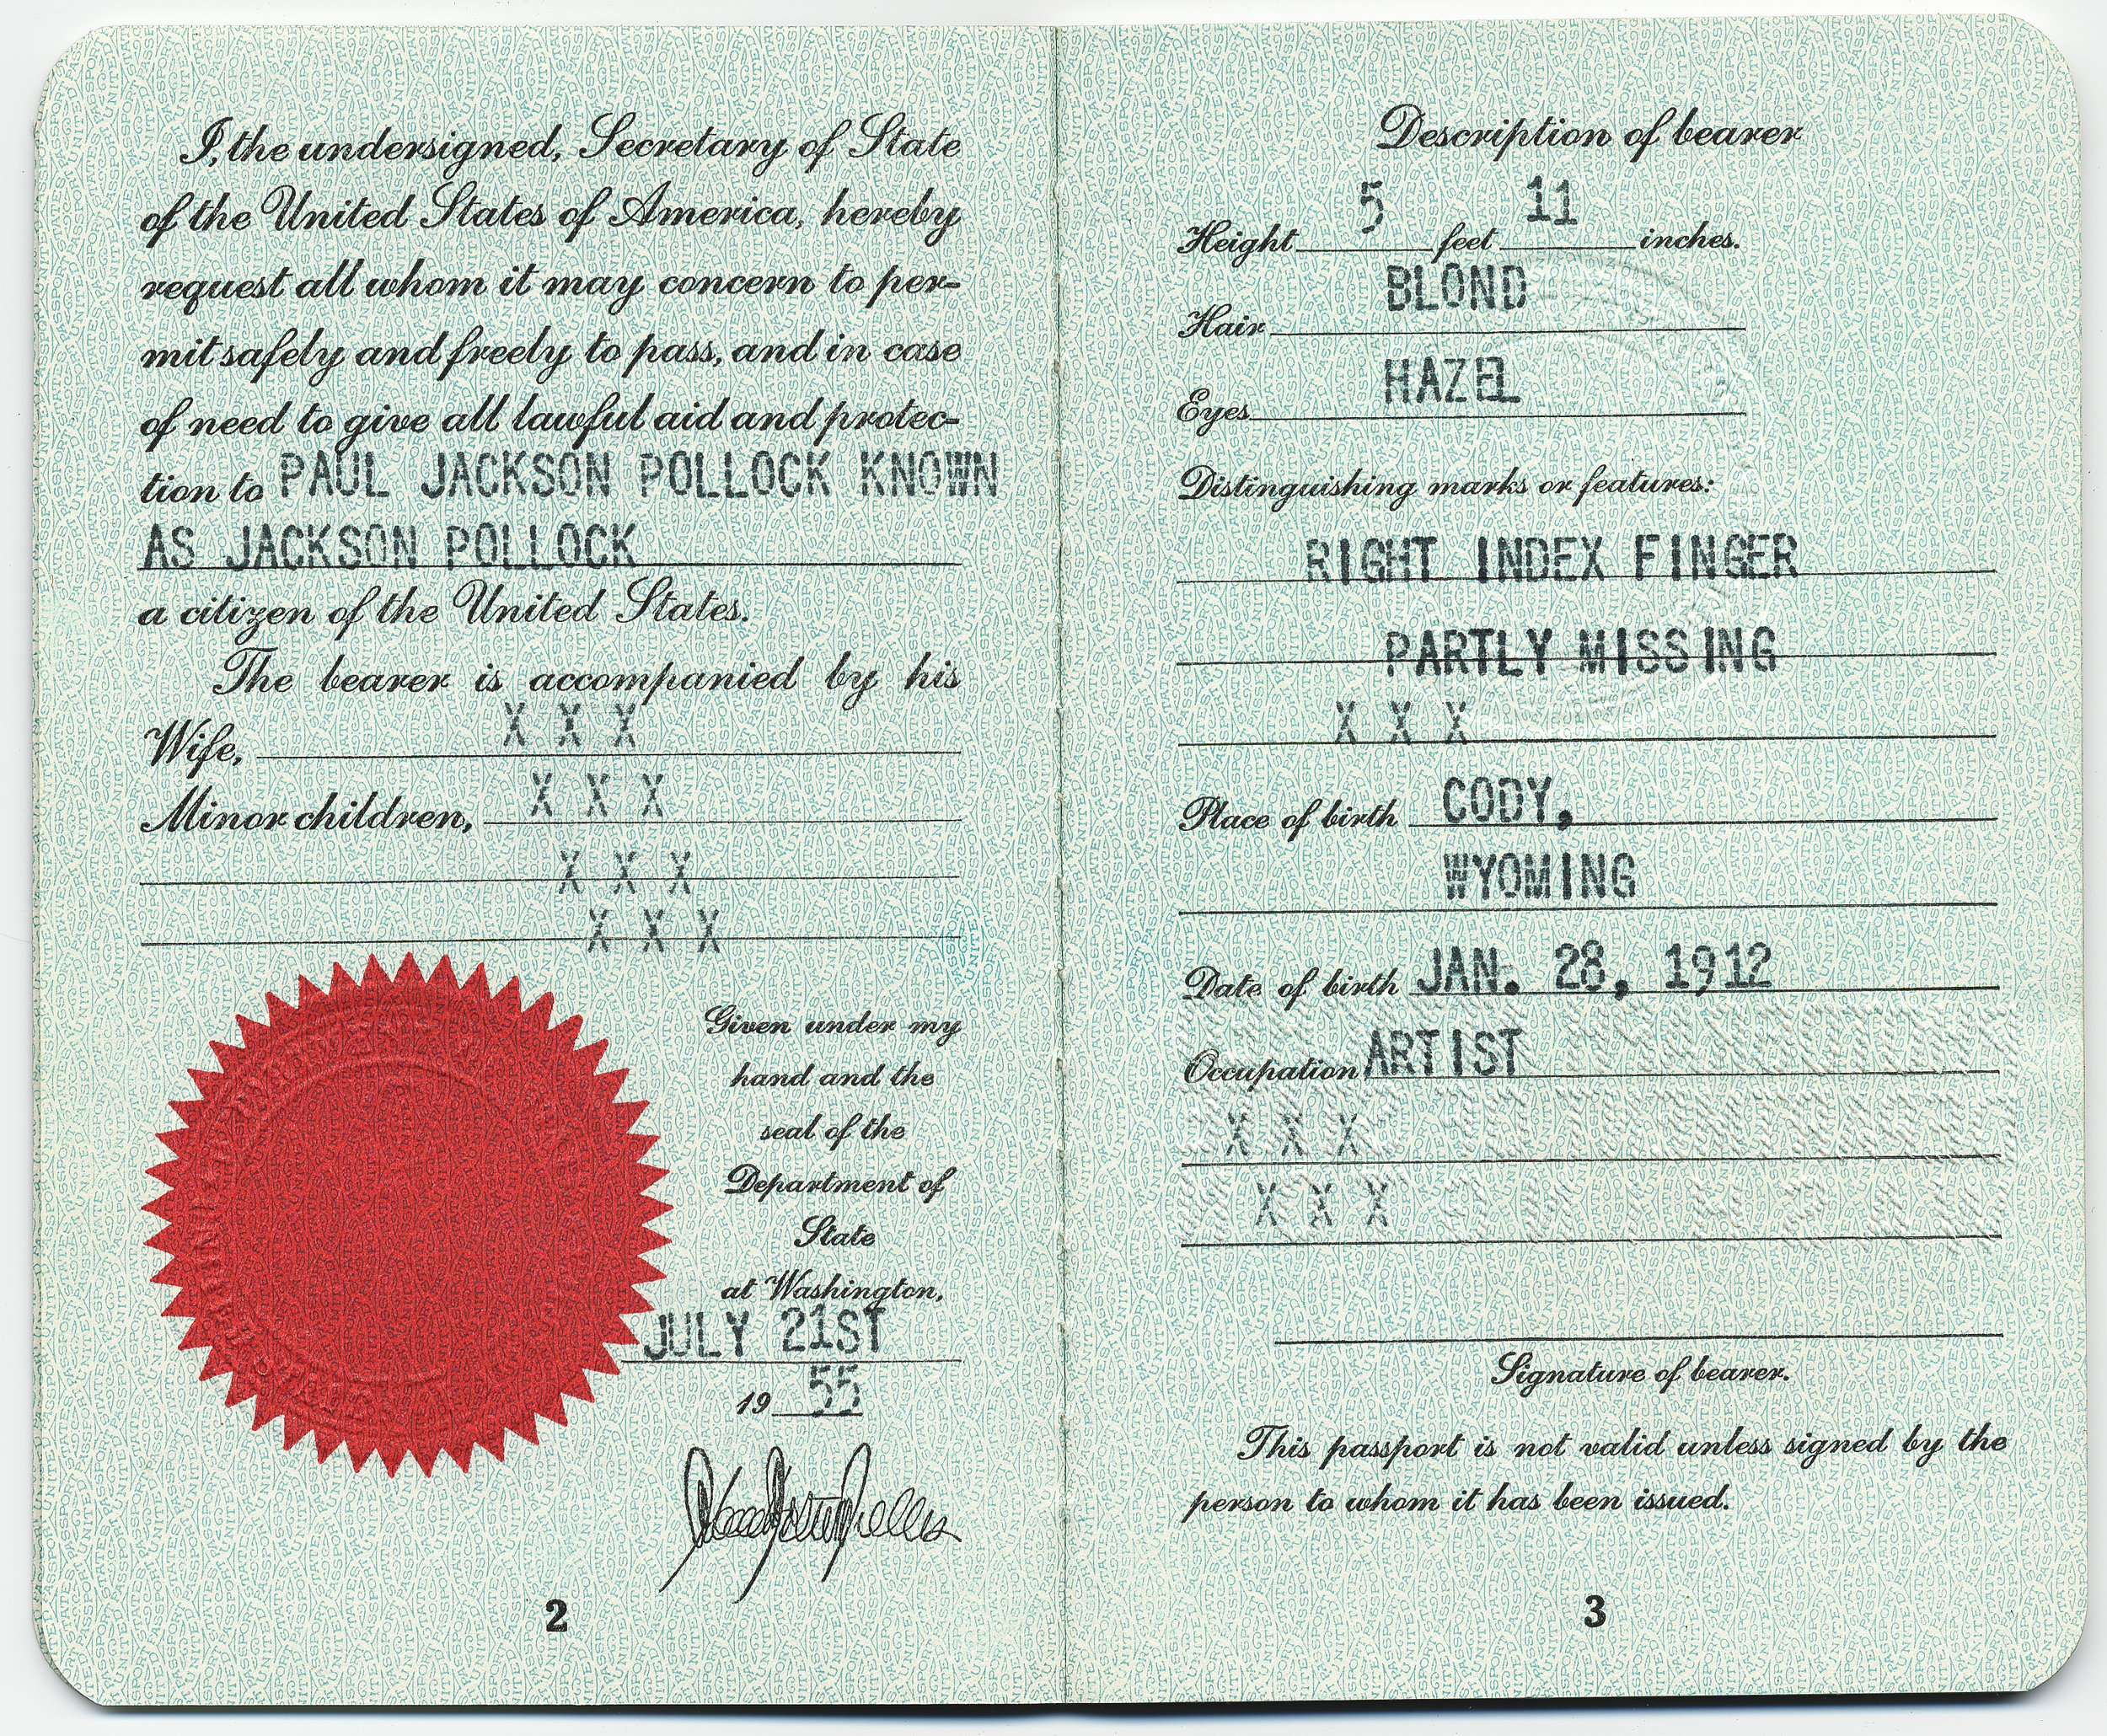 I, the undersigned, Secretary of State
of the United States of America, hereby
request all whom it may concern to per-
mit safely and freely to pass, and in case
of need to give all lawful aid and protec-
tion to PAUL JACKSON POLLOCK KNOWN
AS JACKSON POLLOCK
a citizen of the United States.
The bearer is accompanied by his
Wife, X X X
Minor children, X X X
X X X
X X X
Given under my
hand and the
seal of the
Department of
State
at Washington,
JULY 21ST
19 55
2
Description of bearer
Height 5 feet 11 inches.
Hair BLOND
Eyes HAZEL
Distinguishing marks or features:
RIGHT INDEX FINGER
PARTLY MISSING
X X X
Place of birth CODY,
WYOMING
Date of birth JAN. 28, 1912
Occupation ARTIST
X X X
X X X
Signature of bearer.
This passport is not valid unless signed by the
person to whom it has been issued.
3